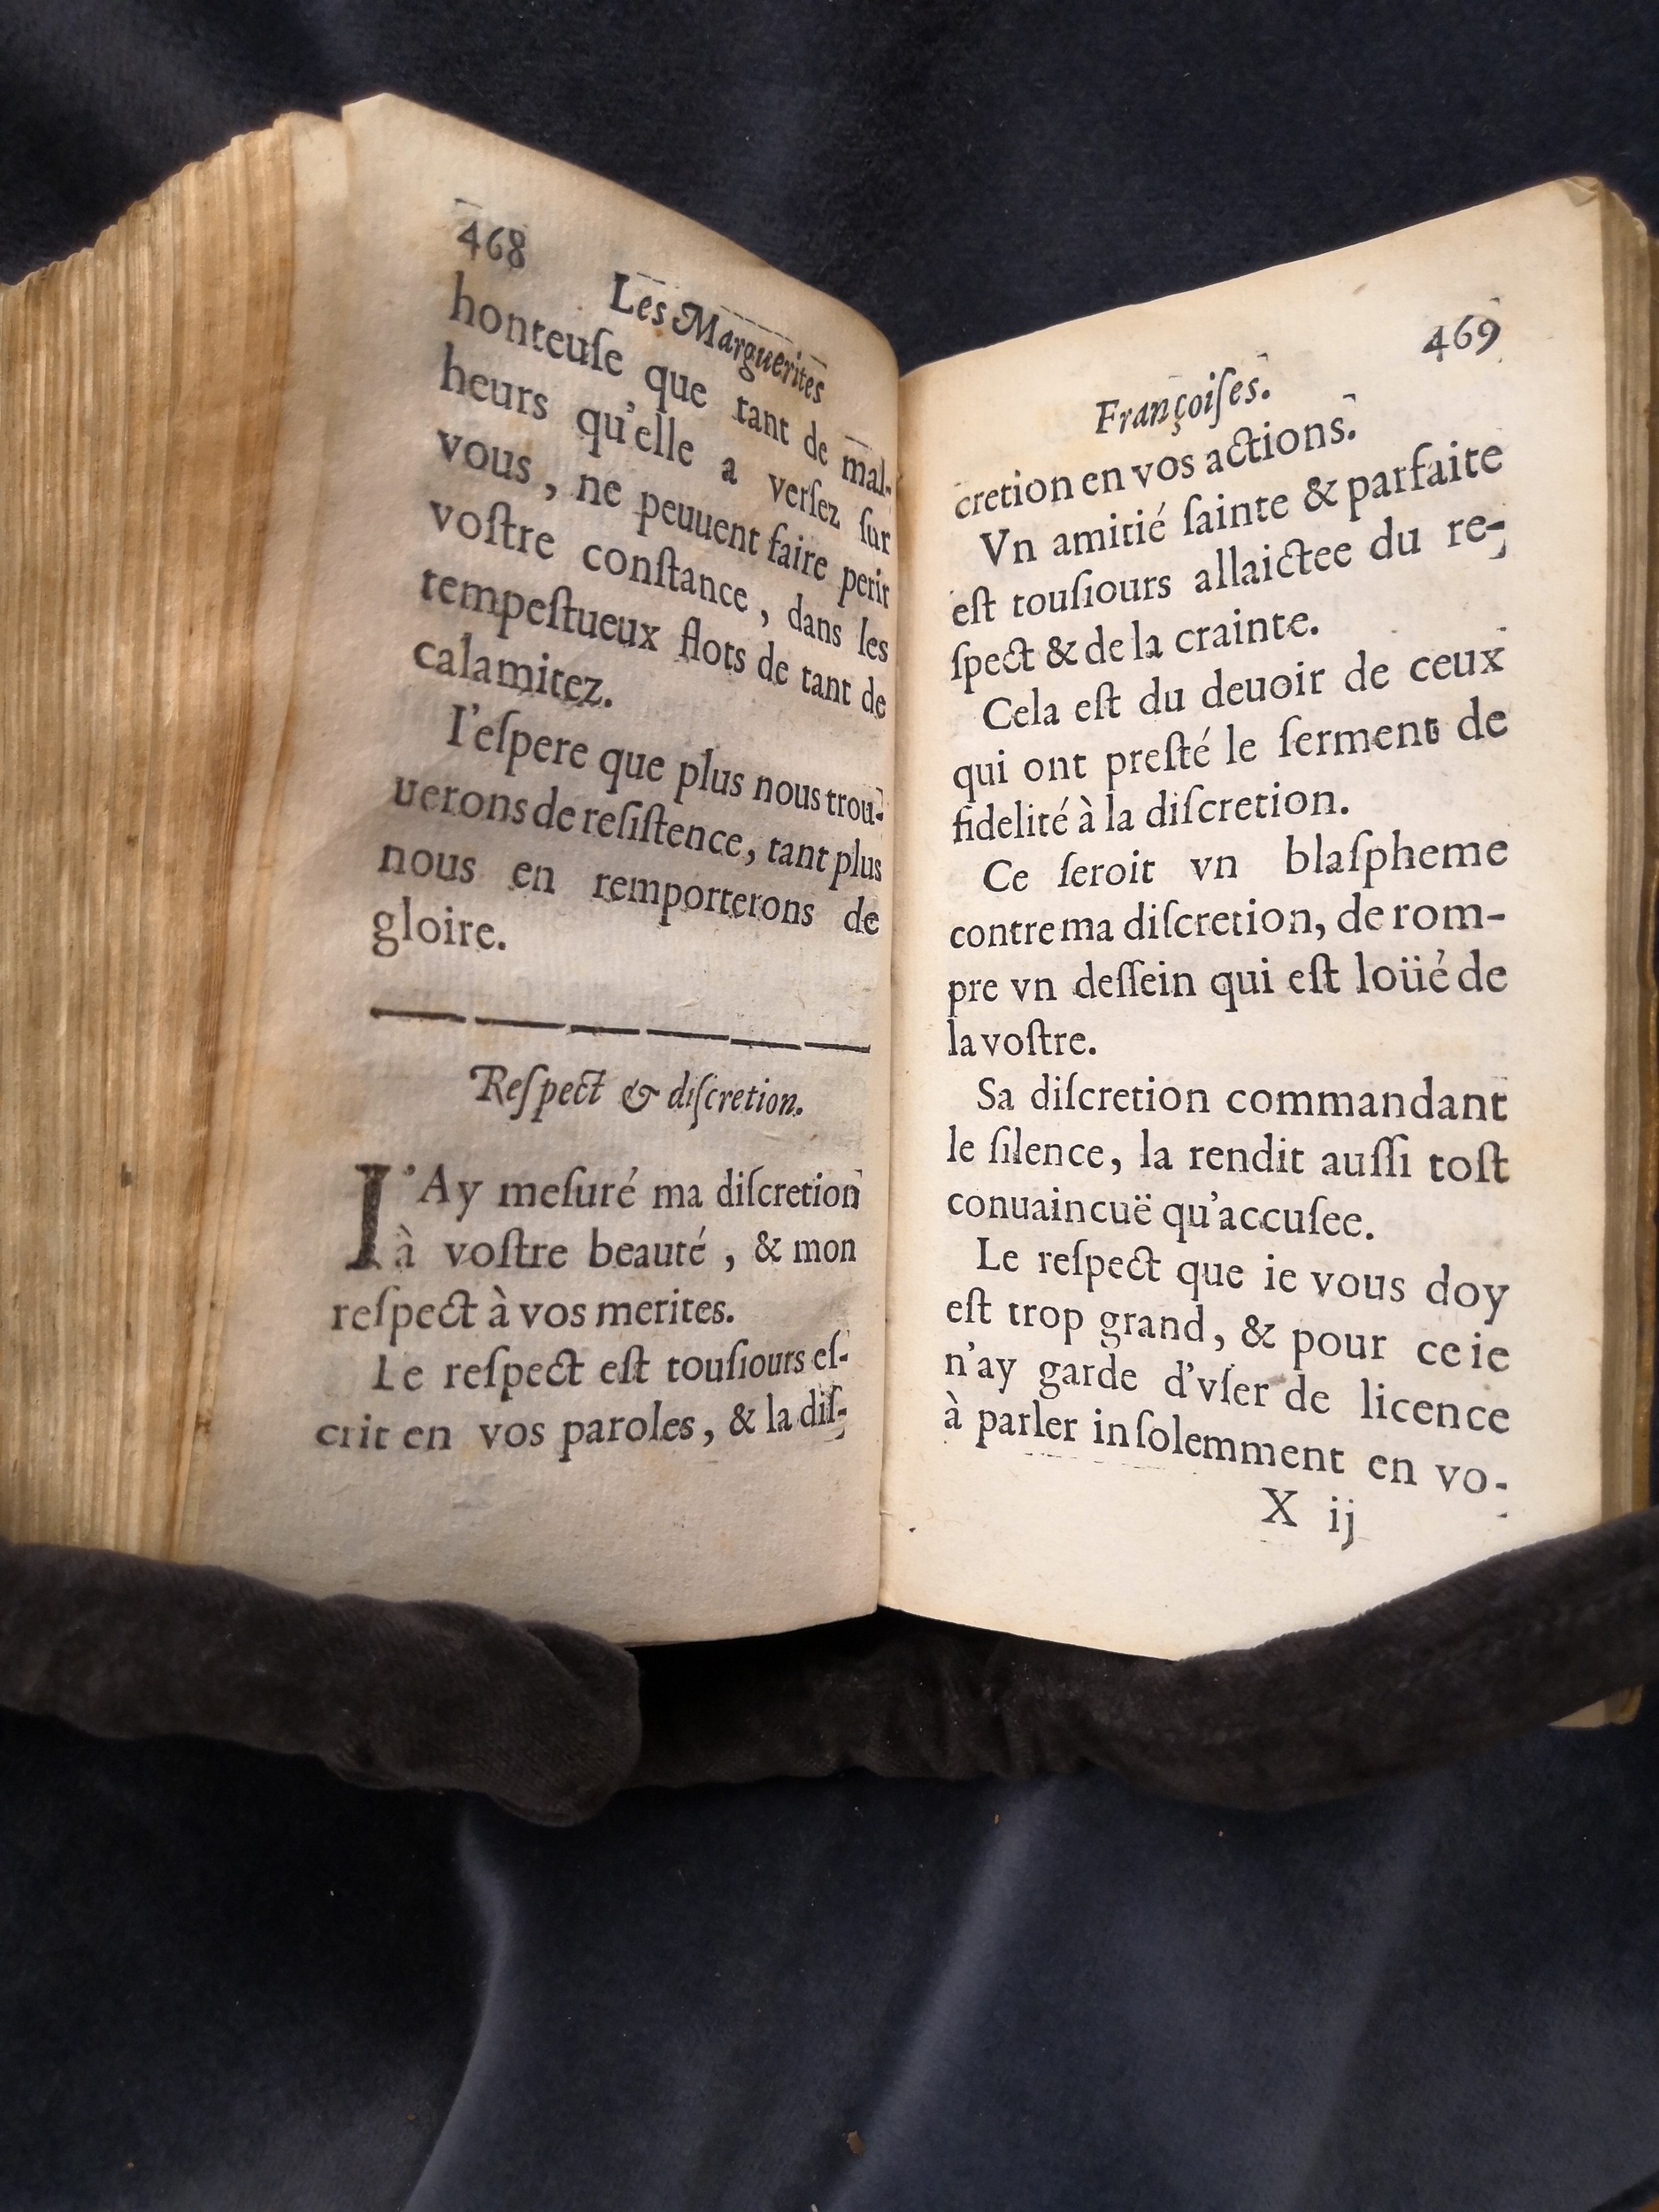 468
Les Marguerites
honteuſe que tant de mal-
heurs qu'elle a verſez ſur
vous, ne peuuent faire perir
voſtre conſtance, dans les
tempeſtueux flots de tant de
calamitez.
I'eſpere que plus nous trou-
uerons de reſiſtence, tant plus
nous en remporterons de
gloire.
Reſpect & diſcretion.
I'Ay meſuré ma diſcretion
à voſtre beauté, & mon
reſpect à vos merites.
Le reſpect eſt touſiours eſ-
crit en vos paroles, & la diſ-
469
Françoiſes.
cretion en vos actions.
Vn amitié ſainte & parfaite
eſt touſiours allaictee du re-
ſpect & de la crainte.
Cela eſt du deuoir de ceux
qui ont preſté le ſerment de
fidelité à la diſcretion.
Ce ſeroit vn blaſpheme
contre ma diſcretion, de rom-
pre vn deſſein qui eſt loüé de
la voſtre.
Sa diſcretion commandant
le ſilence, la rendit auſſi toſt
conuaincuë qu'accuſee.
Le reſpect que ie vous doy
eſt trop grand, & pour ce ie
n'ay garde d'vſer de licence
à parler inſolemment en vo-
X ij